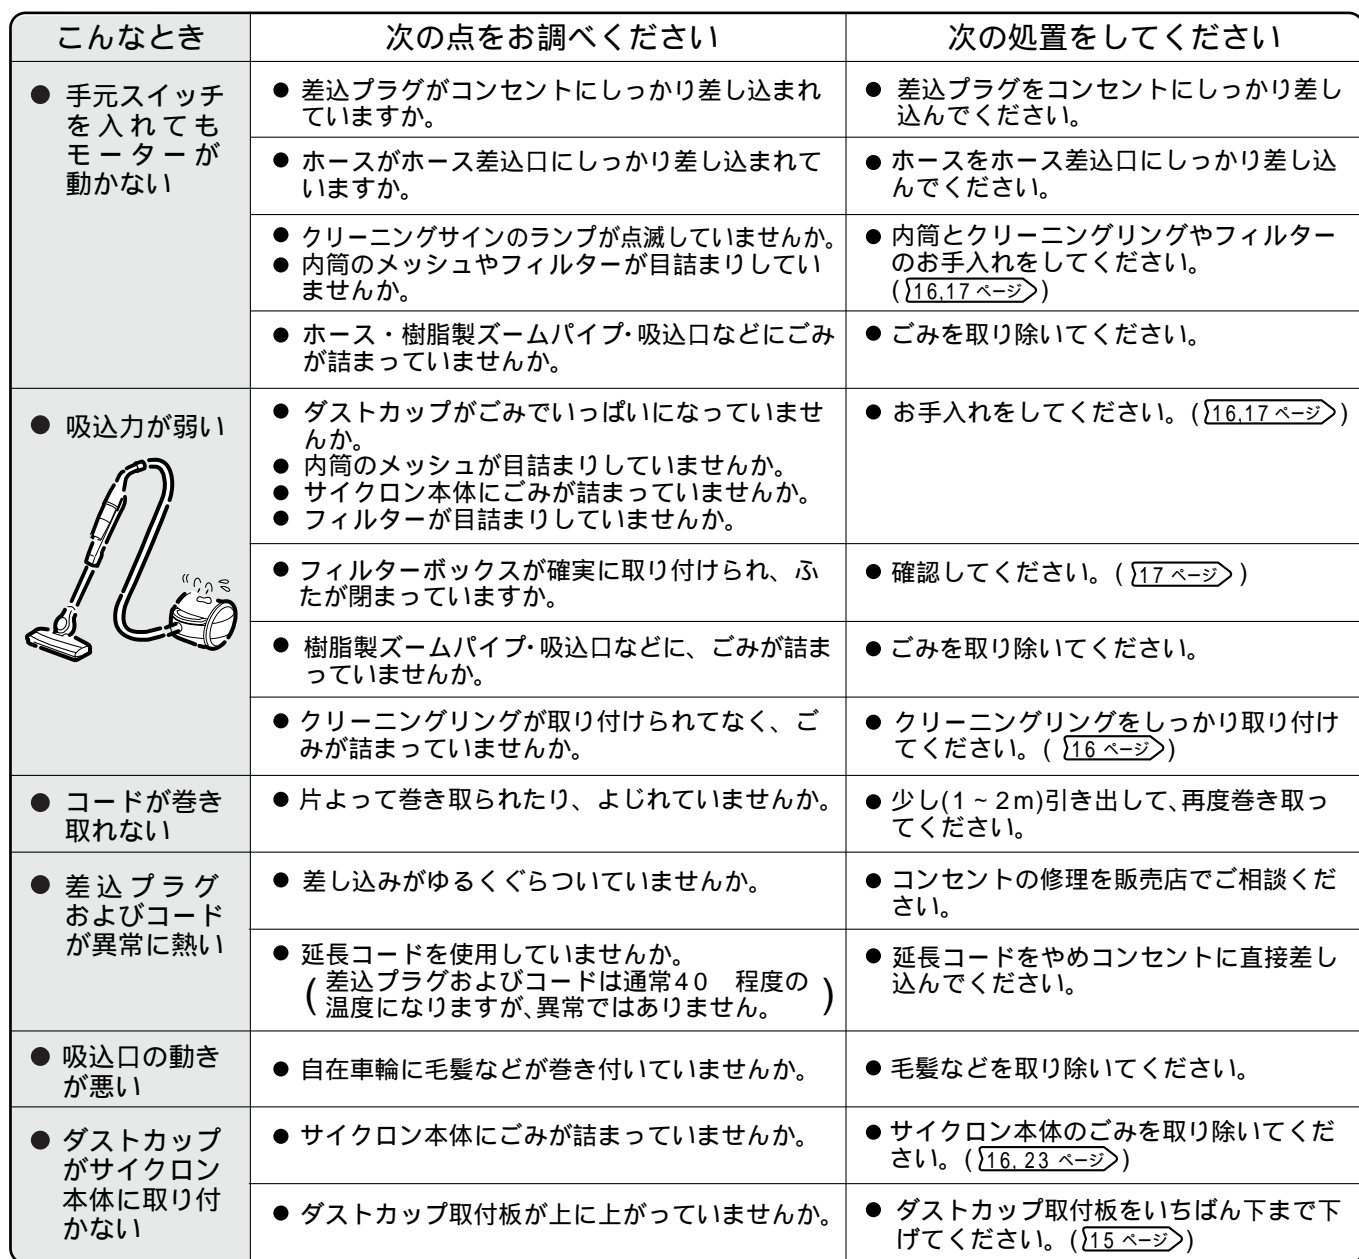 こんなとき
次の点をお調べください
次の処置をしてください
● 手元スイッチ
を入れても
モーターが
動かない
● 差込プラグがコンセントにしっかり差し込まれ
ていますか。
● 差込プラグをコンセントにしっかり差し
込んでください。
● ホースがホース差込口にしっかり差し込まれて
いますか。
● ホースをホース差込口にしっかり差し込
んでください。
● クリーニングサインのランプが点滅していませんか。
● 内筒のメッシュやフィルターが目詰まりしてい
ませんか。
● 内筒とクリーニングリングやフィルター
のお手入れをしてください。
(16,17 ページ)
● ホース・樹脂製ズームパイプ・吸込口などにごみ
が詰まっていませんか。
● ごみを取り除いてください。
● 吸込力が弱い
● ダストカップがごみでいっぱいになっていませ
んか。
● 内筒のメッシュが目詰まりしていませんか。
● サイクロン本体にごみが詰まっていませんか。
● フィルターが目詰まりしていませんか。
● お手入れをしてください。(16,17 ページ)
● フィルターボックスが確実に取り付けられ、ふ
たが閉まっていますか。
● 確認してください。(17 ページ)
● 樹脂製ズームパイプ・吸込口などに、ごみが詰ま
っていませんか。
● ごみを取り除いてください。
● クリーニングリングが取り付けられてなく、ご
みが詰まっていませんか。
● クリーニングリングをしっかり取り付け
てください。(16 ページ)
● コードが巻き
取れない
● 片よって巻き取られたり、よじれていませんか。
● 少し(1~2m)引き出して、再度巻き取っ
てください。
● 差込プラグ
およびコード
が異常に熱い
● 差し込みがゆるくぐらついていませんか。
● コンセントの修理を販売店でご相談くだ
さい。
● 延長コードを使用していませんか。
(差込プラグおよびコードは通常40　程度の
温度になりますが、異常ではありません。)
● 延長コードをやめコンセントに直接差し
込んでください。
● 吸込口の動き
が悪い
● 自在車輪に毛髪などが巻き付いていませんか。
● 毛髪などを取り除いてください。
● ダストカップ
がサイクロン
本体に取り付
かない
● サイクロン本体にごみが詰まっていませんか。
● サイクロン本体のごみを取り除いてくだ
さい。(16, 23 ページ)
● ダストカップ取付板が上に上がっていませんか。
● ダストカップ取付板をいちばん下まで下
げてください。(15 ページ)